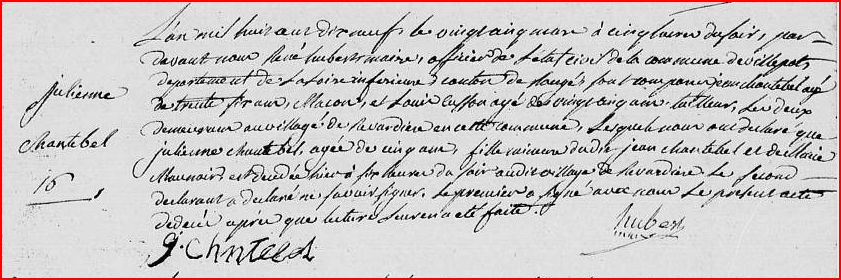 L'an mil huit cent dix neuf, le vingt cinq mars à cinq heures du soir, par-
devant nous René hubert maire, officier de l'état civil de la commune de villepot,
département de la Loire inférieure, canton de Rougé, sont comparu jean chantebel agé
julienne
de trente six ans, Macon, et Louis agé de vingt cinq ans, les deux
demeurans au village de la en cette commune, Lesquels nous ont declaré que
chantebel
julienne chantebel, agée de cinq ans, fille mineure dudit jean chantebel et de Marie
16
est decedée hier à six heures du soir audit village de la Le second
declarant a declaré ne savoir signer, Le premier a signé avec nous Le present acte
de decés après que lecture leur en a eté faite.
hubert
maire
j. Chntebel